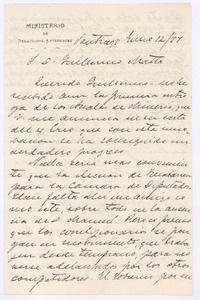 MINISTERIO
DE
RELACIONES EXTERIORES
Santiago Enero 12/87
S. D. Guillermo Matta
Querido Guillermo: no he
recibido aun la primera entre-
ga de los Anales de Mineria, que
U. me anuncia en su carta
del y creo que con esta
se ha conseguido un
verdadero progreso.
Nada seria mas conveniente
que la eleccion de
para la Camara de Diputados.
Hace falta
en este sobre todo en la
ria de S. Manuel. Pero es preciso
que los correlijionarios se pon-
gan en movimiento, que traba-
jen desde temprano, para no
verse adelantados por los otros
competidores. El gobierno por su